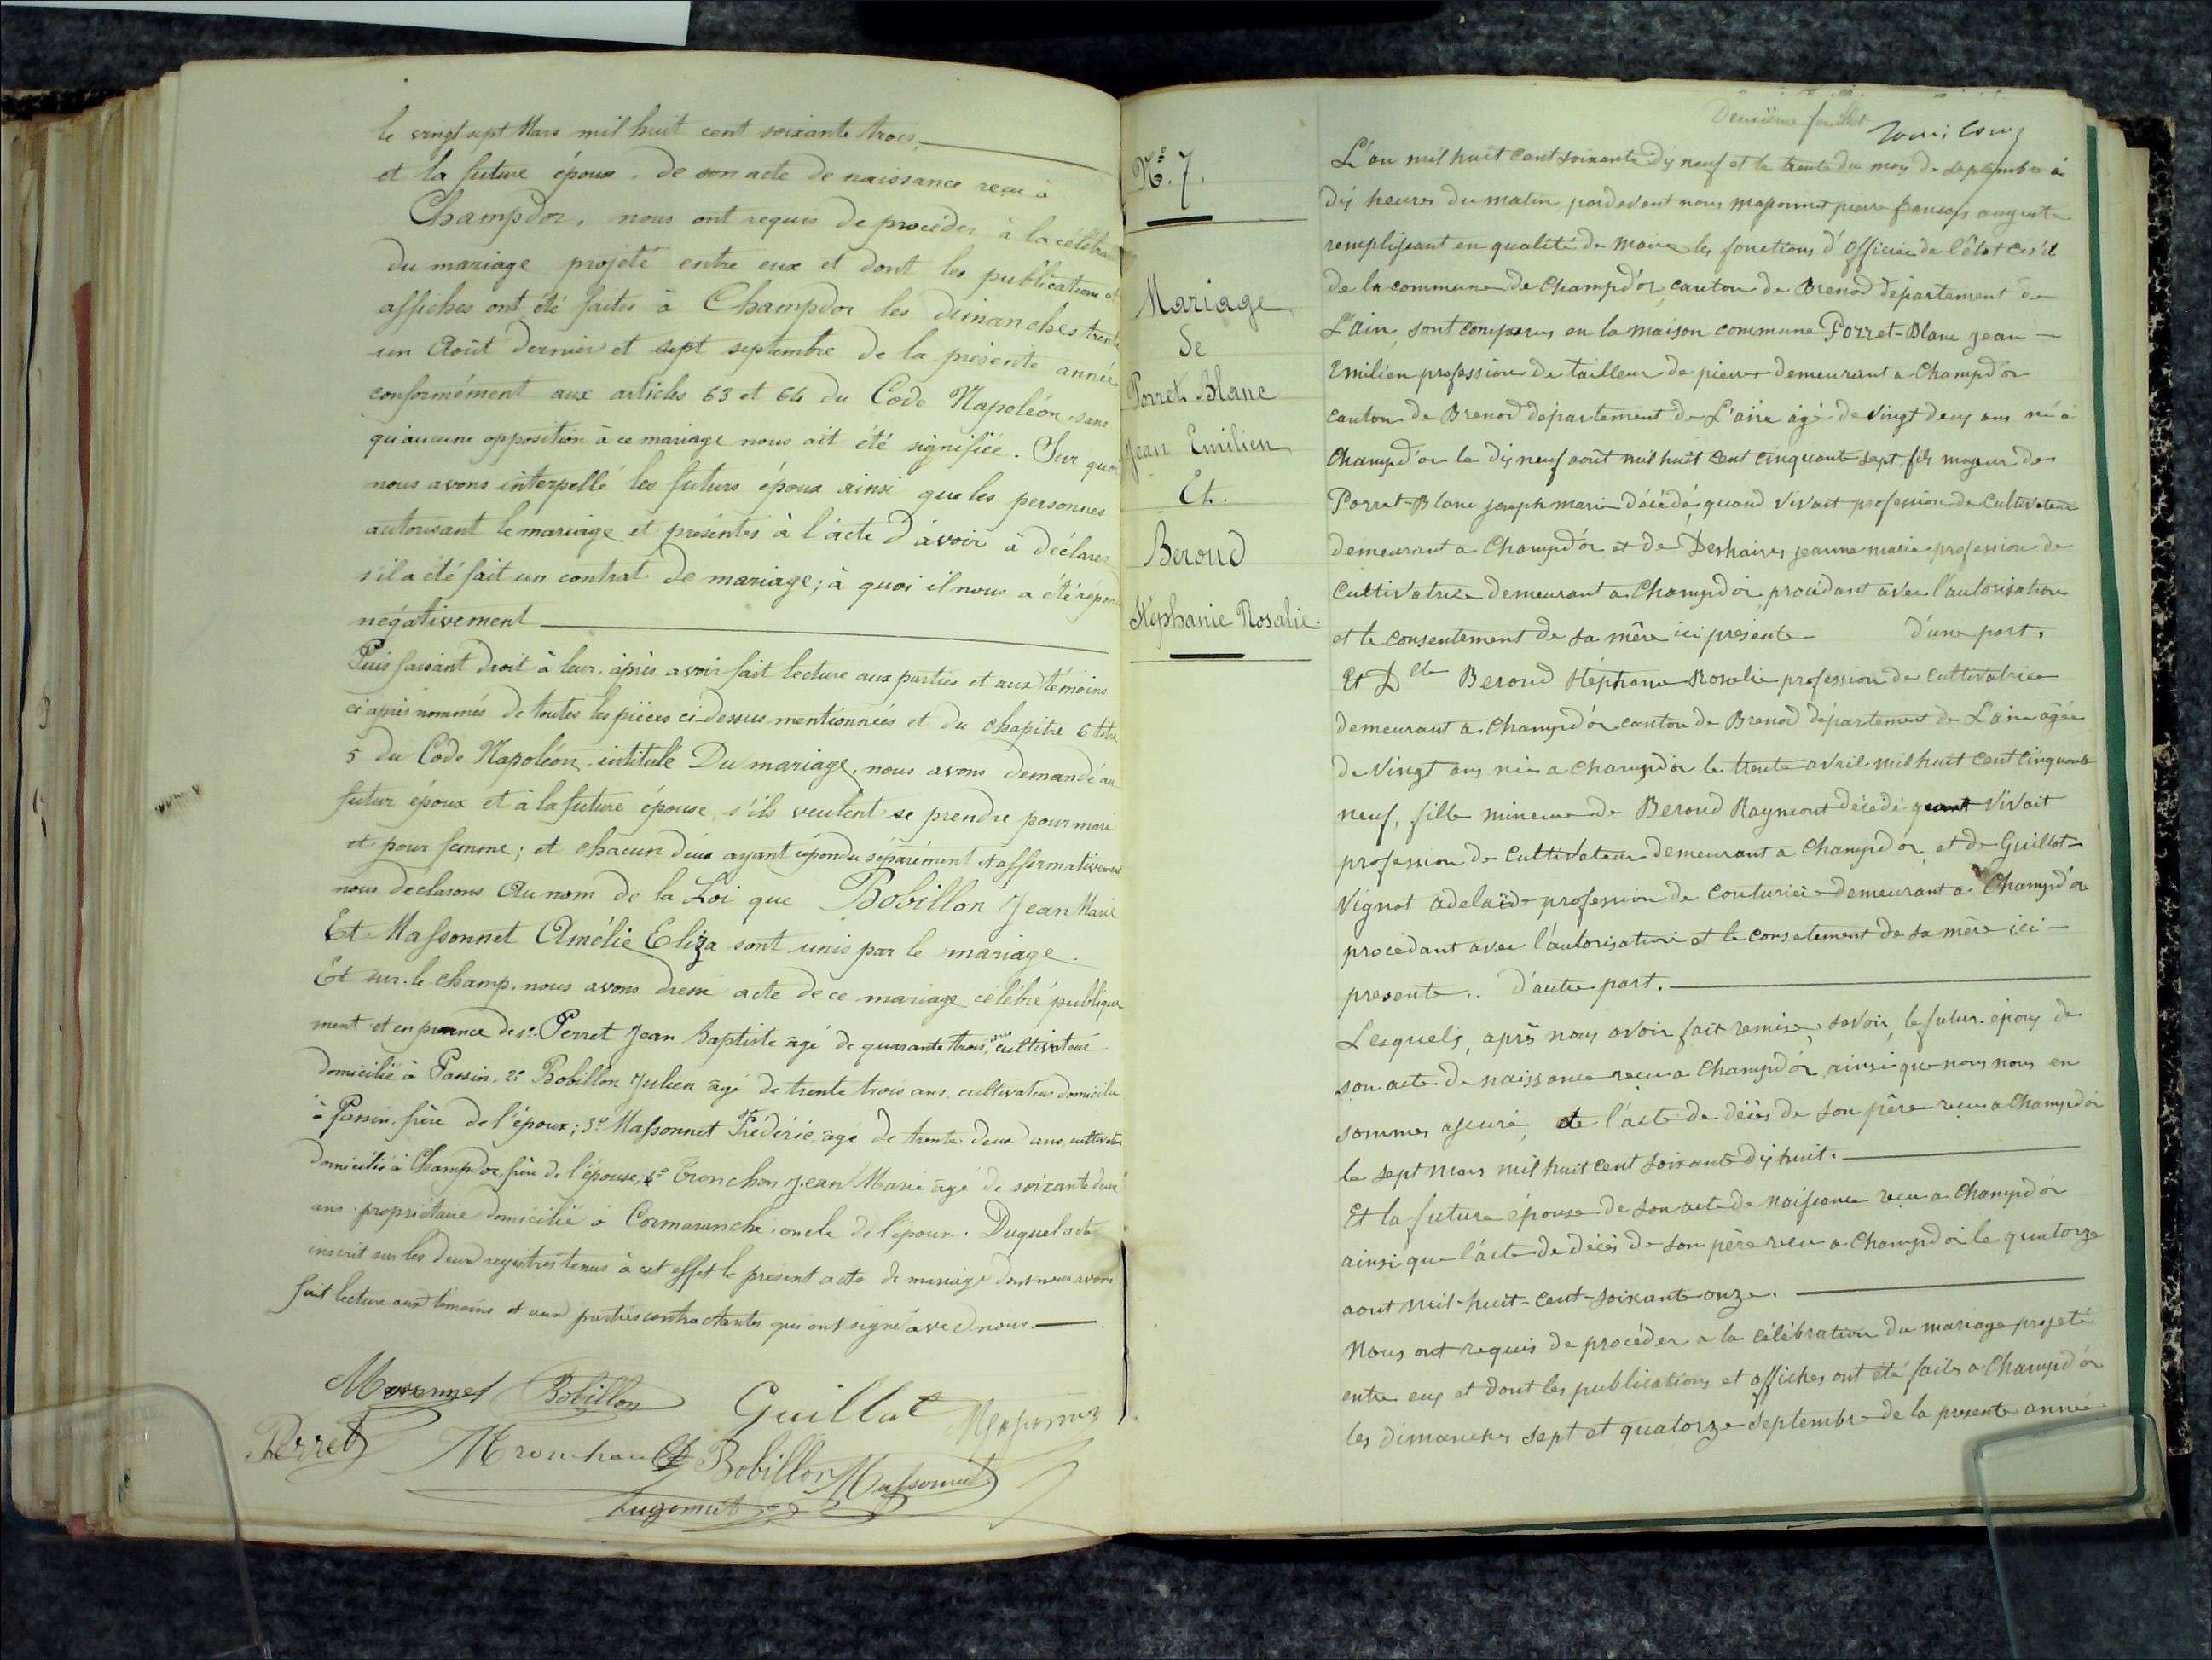 le vingt sept Mars mil huit cent soixante trois,
et la future épouse. de son acte de naissance reçu à
Champdor, nous ont requis de procéder à la célébra
du mariage projeté entre eux et dont les publications et
affiches ont été faites à Champdor les dimanches trente
un Août dernier et sept septembre de la présente année
conformément aux articles 63 et 64 du Code Napoléon, sans
qu'aucune opposition à ce mariage nous ait été signifiée. Sur quoi
nous avons interpellé les futurs époux ainsi que les personnes
autorisant le mariage et présentes à l'acte d'avoir à déclarer
s'il a été fait un contrat de mariage; à quoi il nous a été répon
négativement
Puis faisant droit à leur, après avoir fait lecture aux parties et aux témoins
ci après nommés de toutes les pièces ci-dessus mentionnées et du chapitre 6 titre
5 du Code Napoléon, intitulé Du mariage, nous avons demandé au
futur époux et à la future épouse, s'ils veulent se prendre pour mari
et pour femme; et chacun d'eux ayant répondu séparément et affirmativement
nous déclarons Au nom de la Loi que Bobillon Jean Marie
Et Massonnet Amélie Eliza sont unis par le mariage.
Et sur-le champ, nous avons dressé acte de ce mariage célébré publique
ment et en présence des Perret Jean Baptiste âgé de quarante trois ans cultivateur
domicilié à Passin, 2º Bobillon Julien âgé de trente trois ans, cultivateur domicilié
à Passin, frère de l'époux; 3º Massonnet Frédéric, âgé de trente deux ans, cultivateur
domicilié à Champdor, frère de l'épouse, 4º Tronchon Jean Marie âgé de soixante deux
ans, propriétaire domicilié à Cormaranche, oncle de l'époux. Duquel acte
inscrit sur les deux registres tenus à cet effet le présent acte de mariage dont nous avons
fait lecture aux témoins et aux parties contractantes qui ont signé avec nous.
Bobillon Guillot
Perret Bobillon Massonnet
Deuxième feuillet
Nº. 7.
Mariage
De
Porret Blanc
Jean Emilien
Et.
Beroud
Stéphanie Rosalie.
L'an mil huit cent soixante dix neuf et le trente du mois de septembre à
dix heures du matin, pardevant nous Massonnet pierre françois auguste
remplissant en qualité de maire les fonctions d'officier de l'état civil
de la commune de Champd'or, canton de Brenod département de
L'ain, sont comparus en la maison commune Porret-Blanc jean -
Emilien profession de tailleur de pierres demeurant a Champd'or
canton de Brenod département de L'ain âgé de vingt deux ans né à
Champd'or le dix neuf août mil huit cent cinquante sept, fils majeur de
Porret-Blanc joseph marie décédé, quand vivait profession de Cultivateur
demeurant a Champd'or et de Deshaires jeanne marie profession de
Cultivatrice demeurant a Champd'or, procédant avec l'autorisation
et le consentement de sa mère ici présente d'une part.
Et Dlle Beroud stéphane Rosalie profession de cultivatrice
demeurant a Champd'or canton de Brenod département de L'ain âgée
de Vingt ans née a champd'or le trente avril mil huit cent cinquante
neuf, fille mineure de Beroud Raymont décédé quant vivait
profession de Cultivateur demeurant a Champd'or, et de Guillot-
Vignot adelaïde profession de couturière demeurant a Champd'or
procédant avec l'autorisation et le consetement de sa mère ici -
presente.. d'autre part.
Lesquels, après nous avoir fait remise, savoir, le futur époux de
son acte de naissance reçu a Champd'or, ainsi que nous nous en
sommes assuré, de l'acte de décès de son père reçu a Champd'or
le sept mars mil huit cent soixante dix huit.
Et la future épouse de son acte de naissance reçu a Champd'or
ainsi que l'acte de décès de son père reçu a Champd'or le quatorze
aout mil-huit-cent-soixante onze.
Nous ont requis de procéder a la célébration du mariage projeté
entre eux et dont les publications et affiches ont été faites a Champd'or
les dimanches sept et quatorze septembre de la présente année